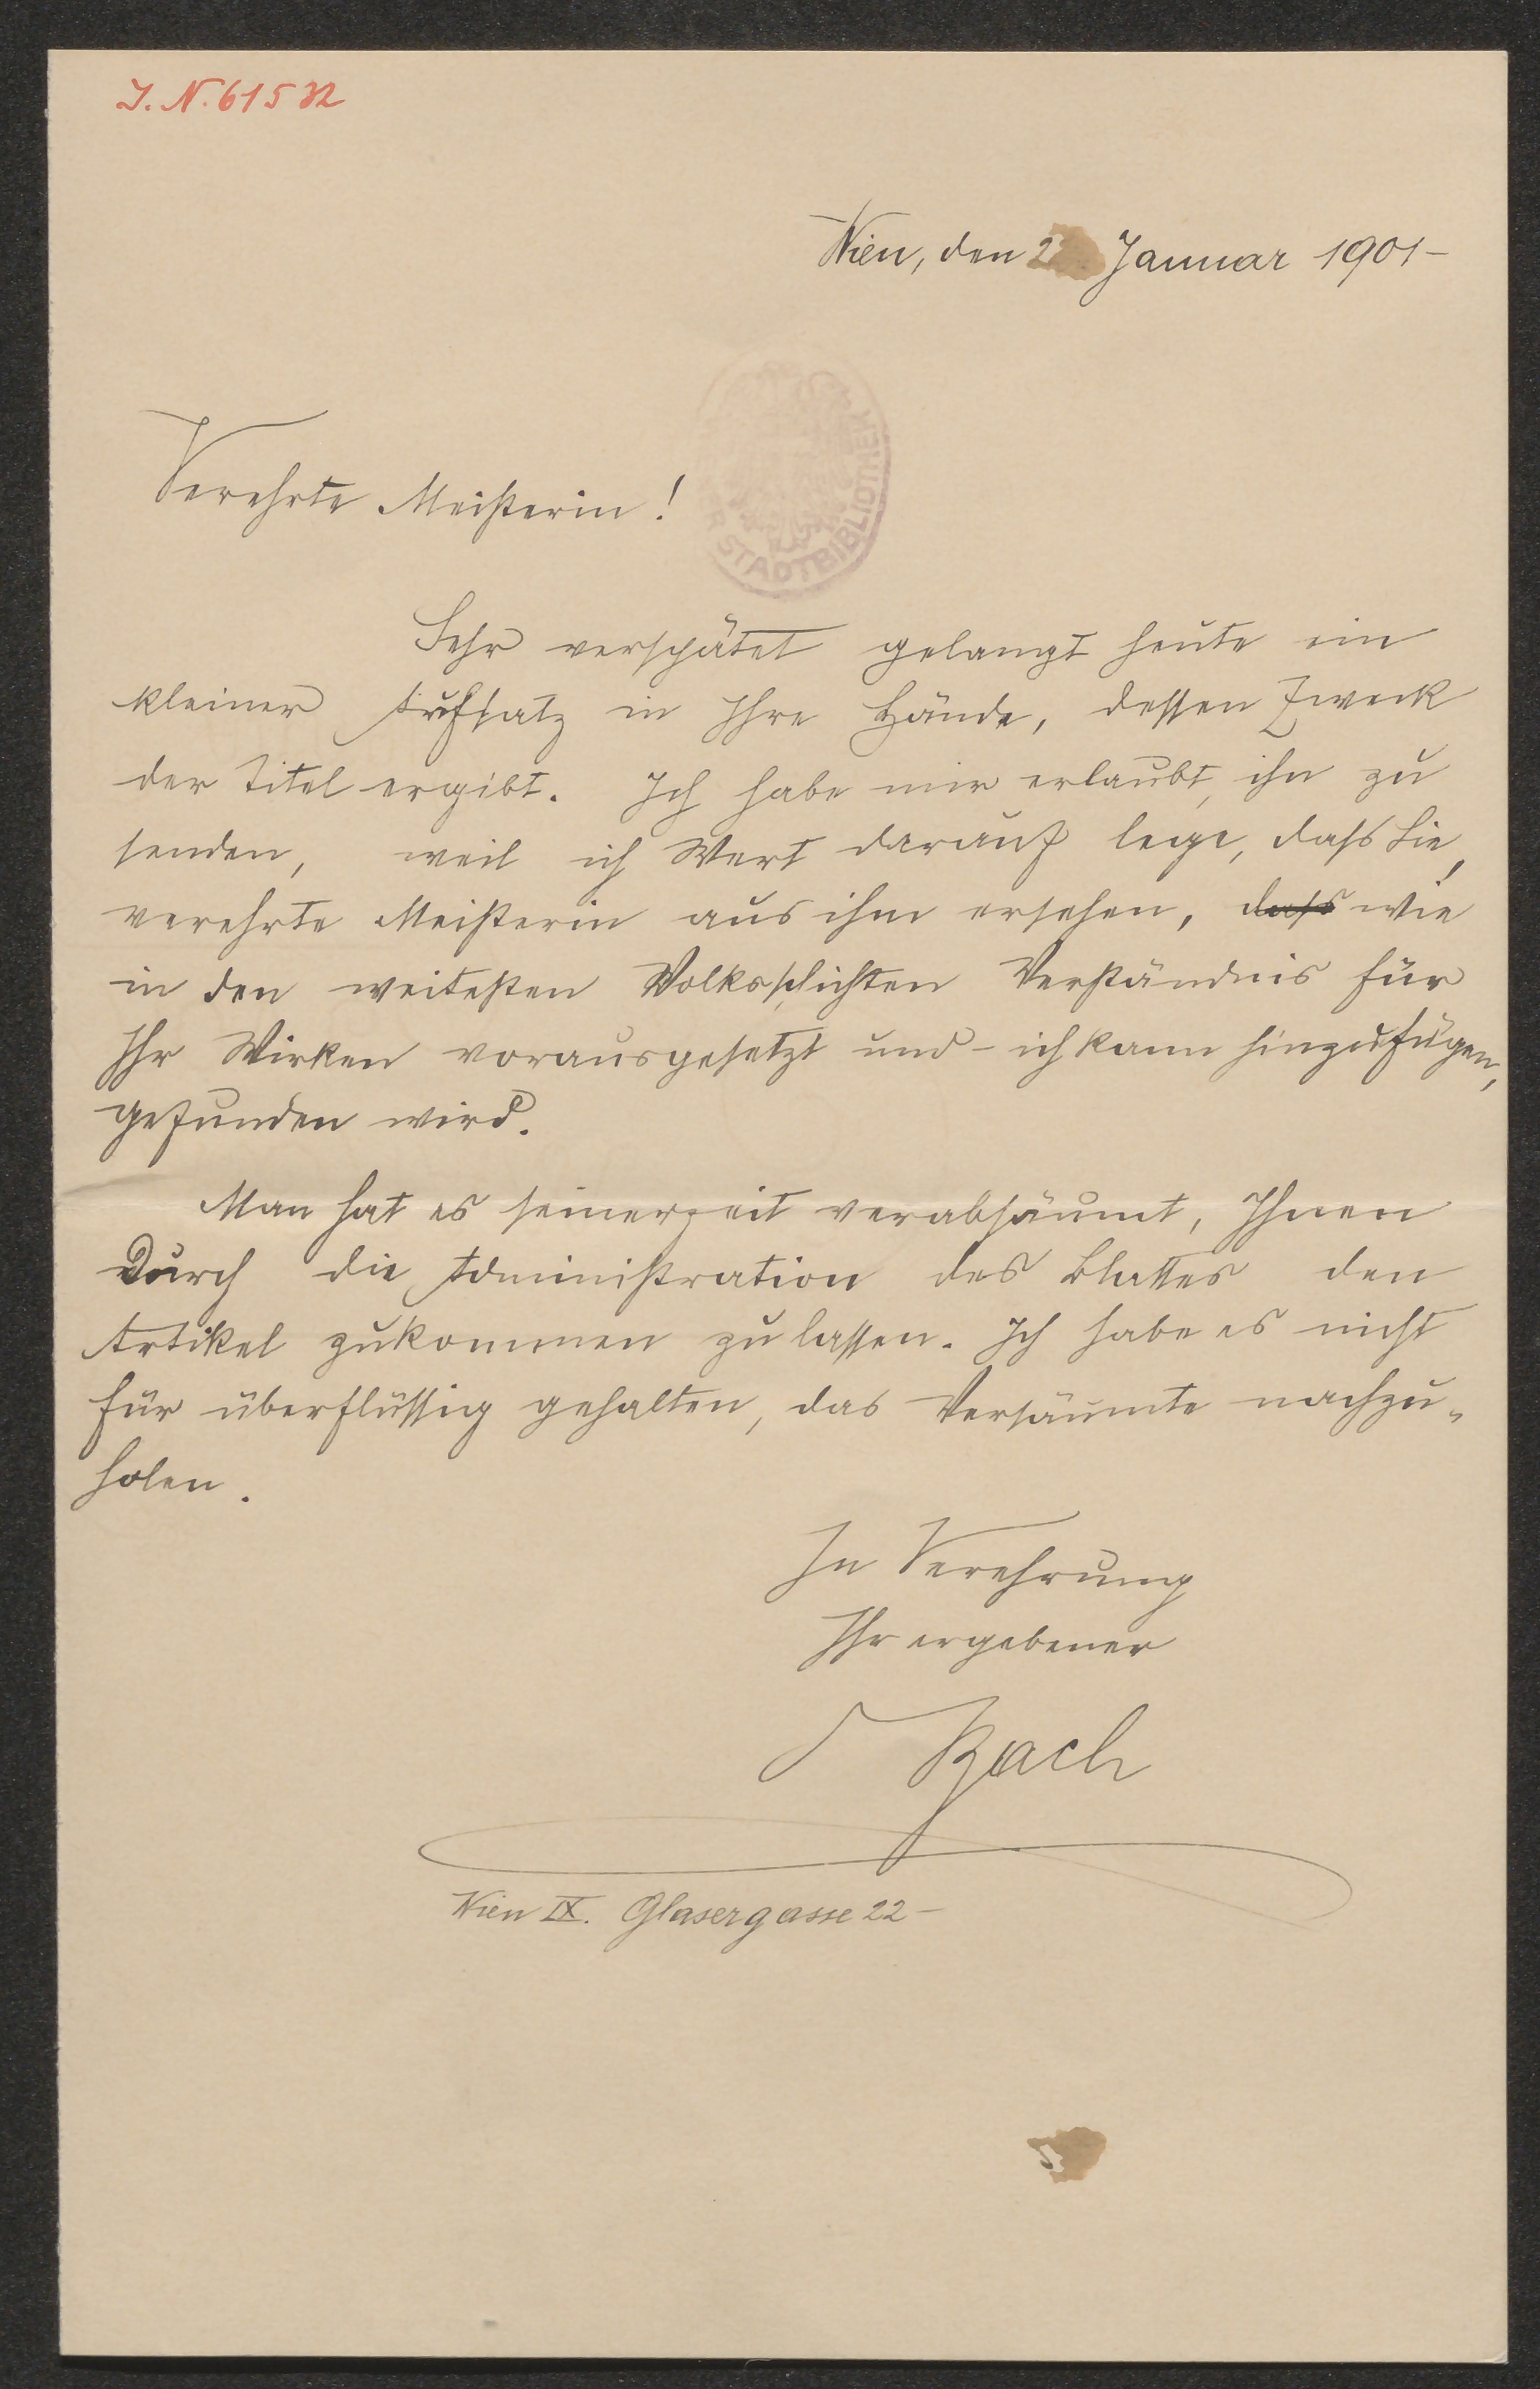 J. N. 61532
Wien, den 2 Januar 1901 –
STADTBIBLIOTHEK
Verehrte Meisterin!
Sehr verspätet gelangt heute ein
kleiner Aufsatz in Ihre Hände, dessen Zweck
der Titel ergibt. Ich habe mir erlaubt, ihn zu
senden, weil ich Wert darauf lege, dass Sie,
verehrte Meisterin aus ihm ersehen, dass wie
in den weitesten Volksschichten Verständnis für
Ihr Wirken vorausgesetzt und – ich kann hinzufügen,
gefunden wird.
Man hat es seinerzeit verabsäumt, Ihnen
durch die Administration des Blattes den
Artikel zukommen zu lassen. Ich habe es nicht
für überflüssig gehalten, das Versäumte nachzu-
holen.
In Verehrung
Ihr ergebener
Bach
Wien IX. Glasergasse 22 –